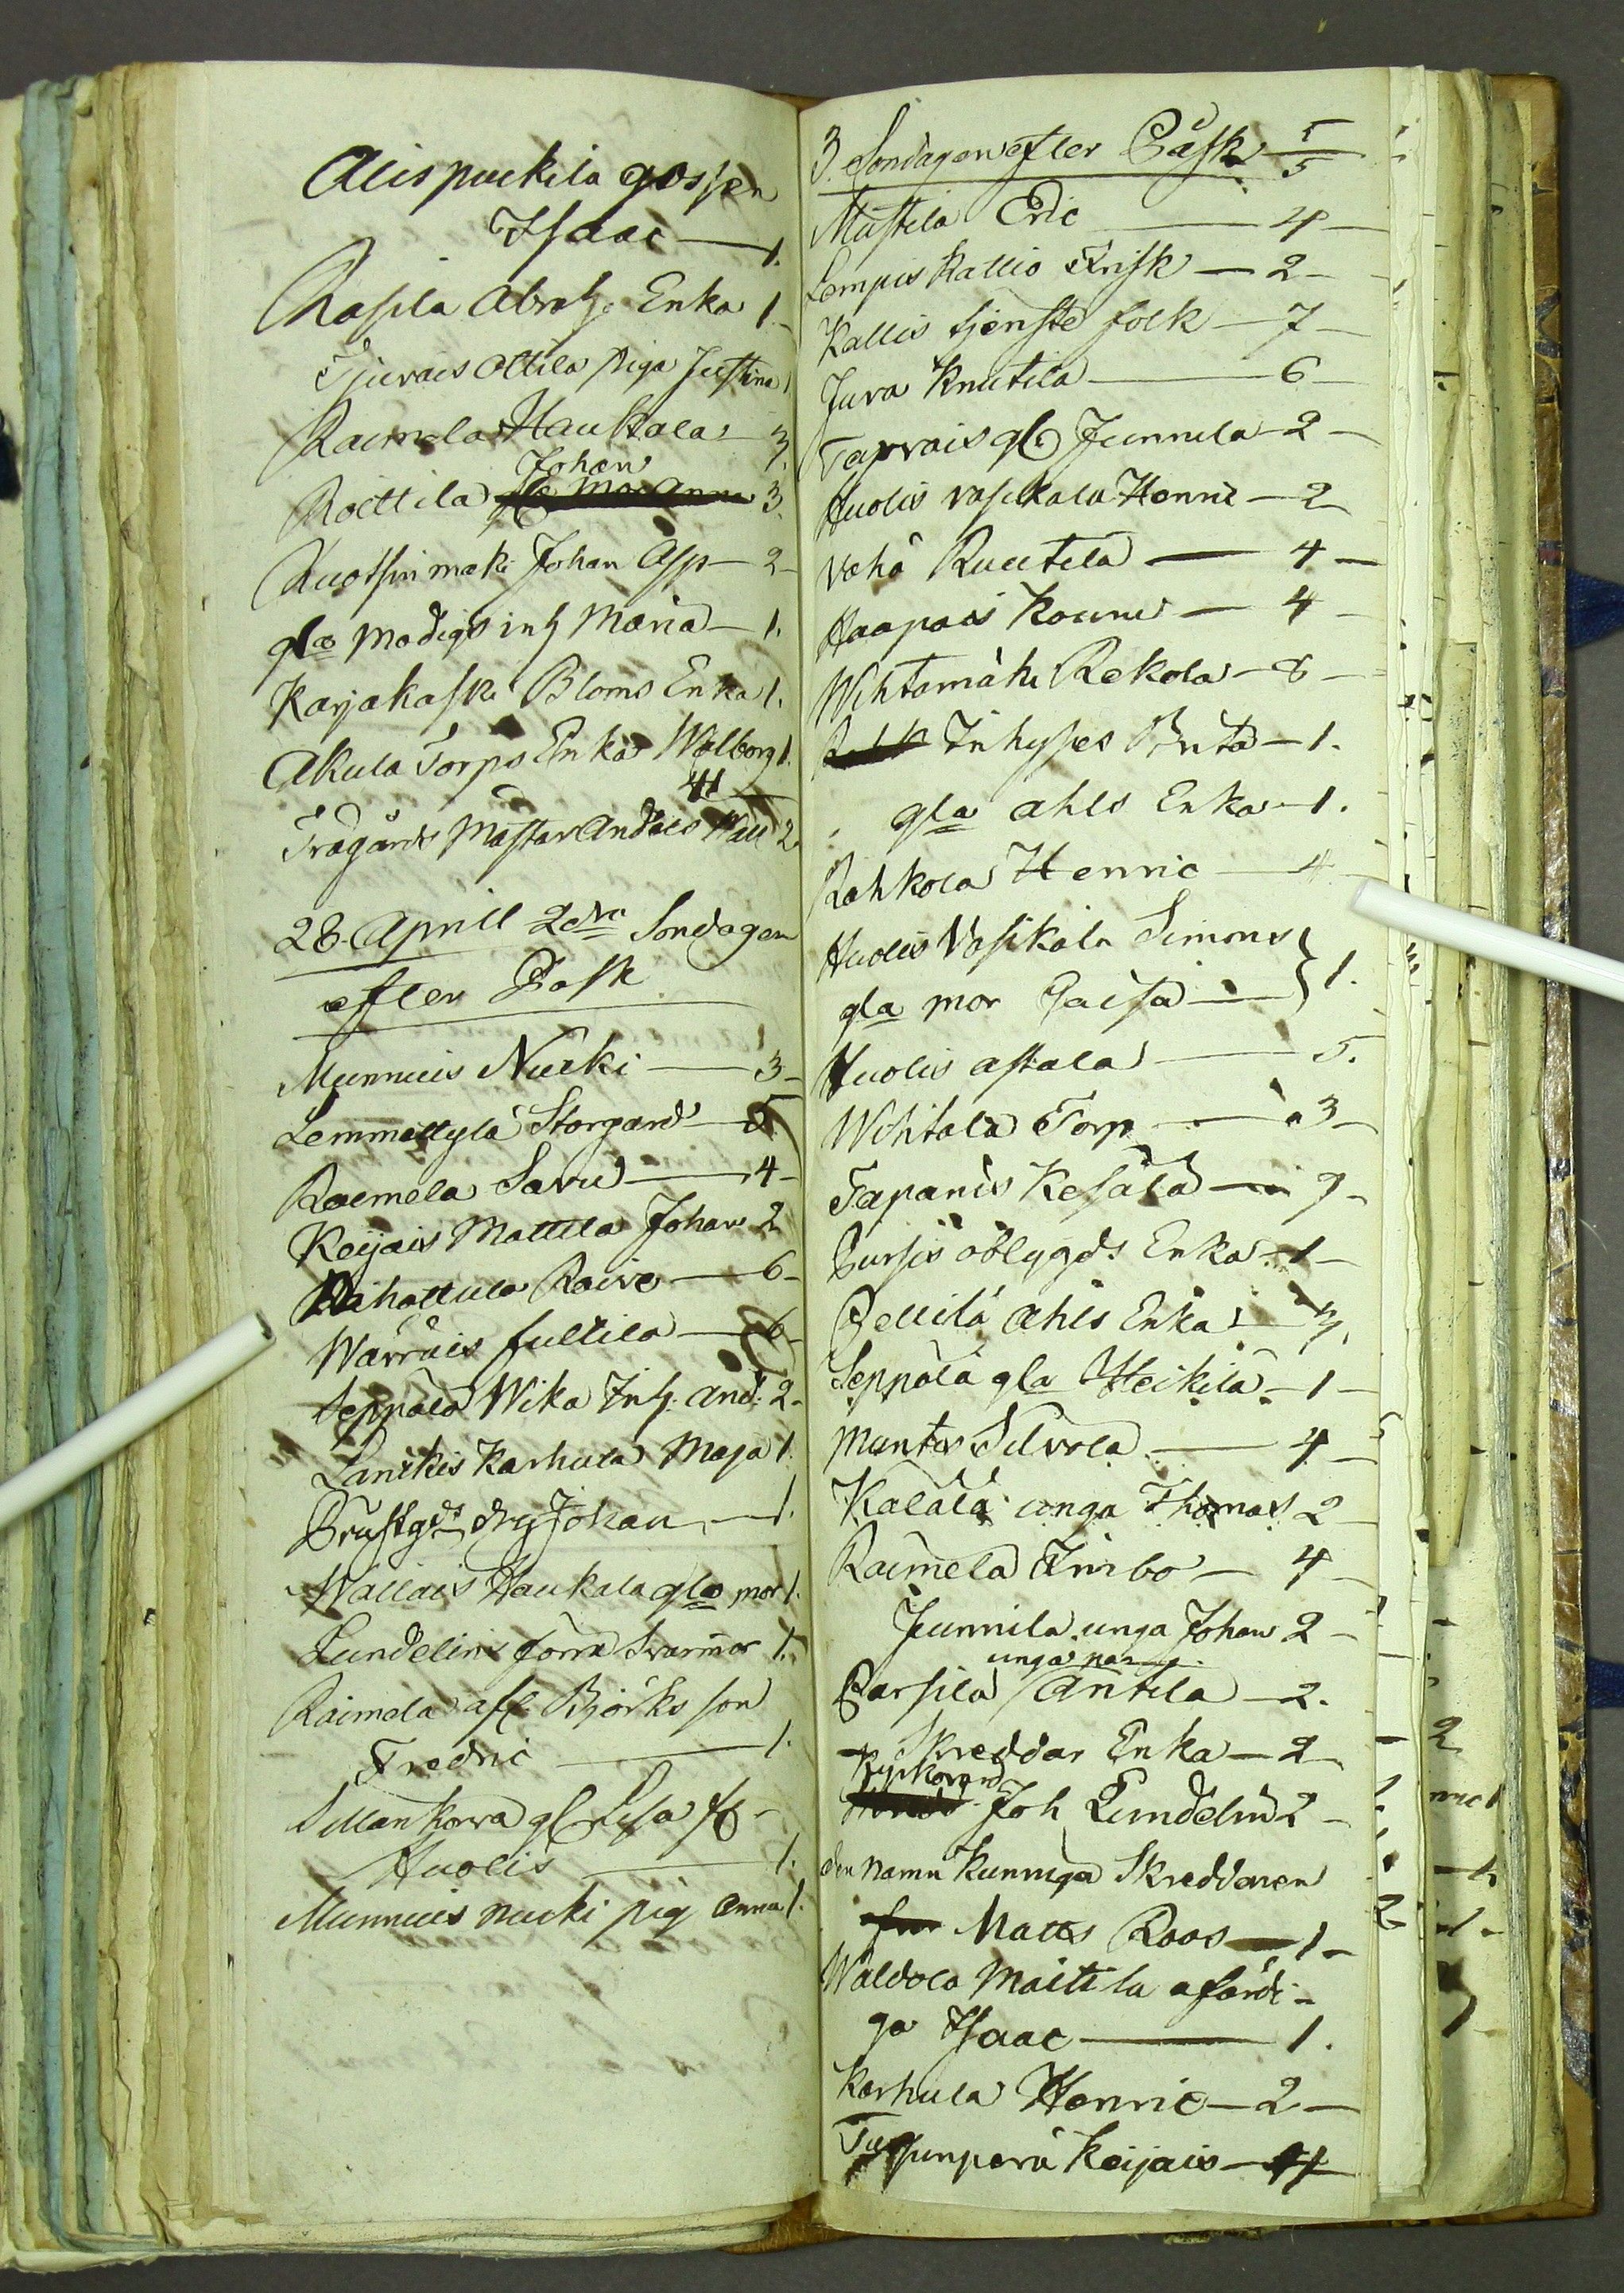 Alispuckila gossen
Isaac — 1.
Rasila Abrah: Enka 1.
Tjuvais Ottila piga Justina 1
Raimela Haukala — 3.
Johan
Roittila 3.
Ruotsin maki Johan Asp — 2 —
gla Modigs inh Maria — 1.
Karjakaski Bloms Enka 1.
Akula Torps Enka Walborg 1.
41
Trägårds Mästar Anders Wall 2.
28. April 2dra Sondagen
efter Påsk
Munnuis Nucki — 3 —
Lemmettylä Storgard — 5
Raemela Savu — 4 —
Keijais Mattila Johan 2
Nihattula Raivo — 6 —
Warvais fultila — 6 —
Seppälä Wika Inh. And: 2 —
Lanikis Karhula Maja 1.
Prustgds drg Johan — 1.
Wallais Haukala gla mor 1.
Lundelins förra Svarmor 1.
Raimela afl. Björks son
Fredric — 1.
Sillankorva gl Lisa fr
Huolis — 1.
Munnuis nucki pig Anna 1.
3. Sondagen efter Påsk 5/5
Mustila Eric — 4 —
Lempis Kallio Frisk — 2 —
Kallis tjenste folk — 7 —
Juva Knutila — 6 —
Tarvais gl Junnila — 2 —
Huolis Vasikala Henric — 2
Vähä Ruutila — 4 —
Haapois Kouru — 4 —
Wihtamäki Rekola — 8 —
Inhyses Brita — 1.
gla ahls Enka — 1.
Rahkola Henric — 4
Huolis Vasikala Simons
gla mor Caisa — } 1.
Huolis astala — 5.
Wihtala Torp — 3 —
Tapanis Kesälä — 9 —
Pursis oblygds Enka — 1 —
Pellilä ahls Enka — 3.
Seppälä gla Heikilä — 1 —
Muntis Silvola — 4 —
Kalälä unga Thomas 2
Raimela Fimbo — 4 —
Junnila unga Johan 2 —
unga par
Parsila Antila — 2.
Skreddar Enka — 2 —
Joh Lundelin 2 —
den namn kunniga Skreddaren
Matts Roos — 1 —
Waldola Maittila afärdi-
ga Isaac — 1.
Karhula Henric — 2 —
Keijais — 4